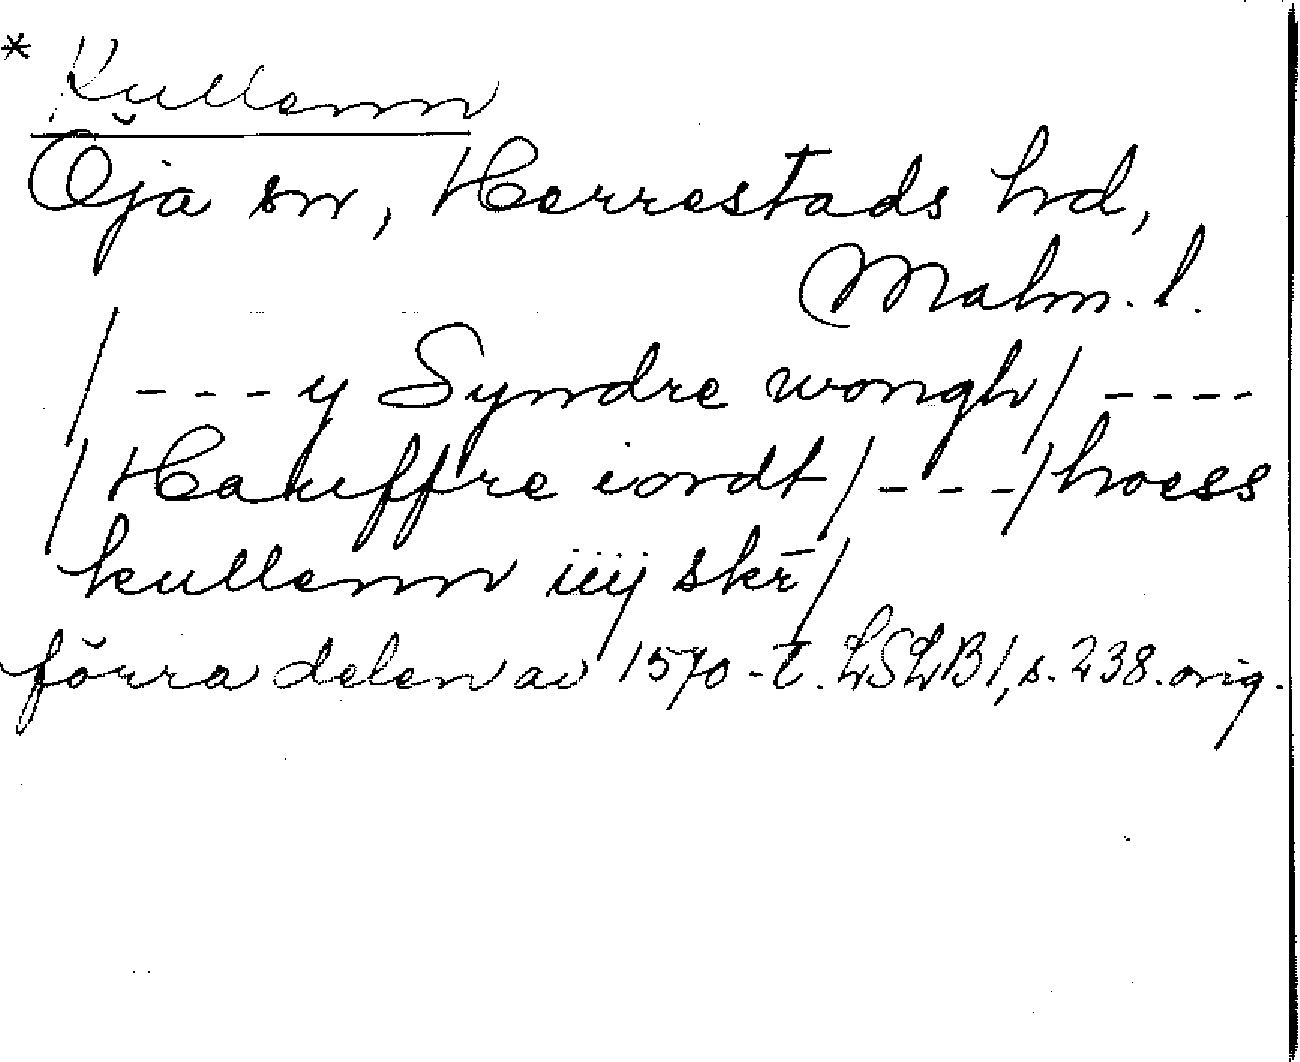 * Kullenn
Öja sn, Herrestads hd,
Malm. l.
/ - - - y Syndre wongh / - - - -
/ Hauffre iordt / - - - / hoess
kullenn iiij skr̄ /
förra delen av 1570-t. LSLB 1, s. 238. orig.